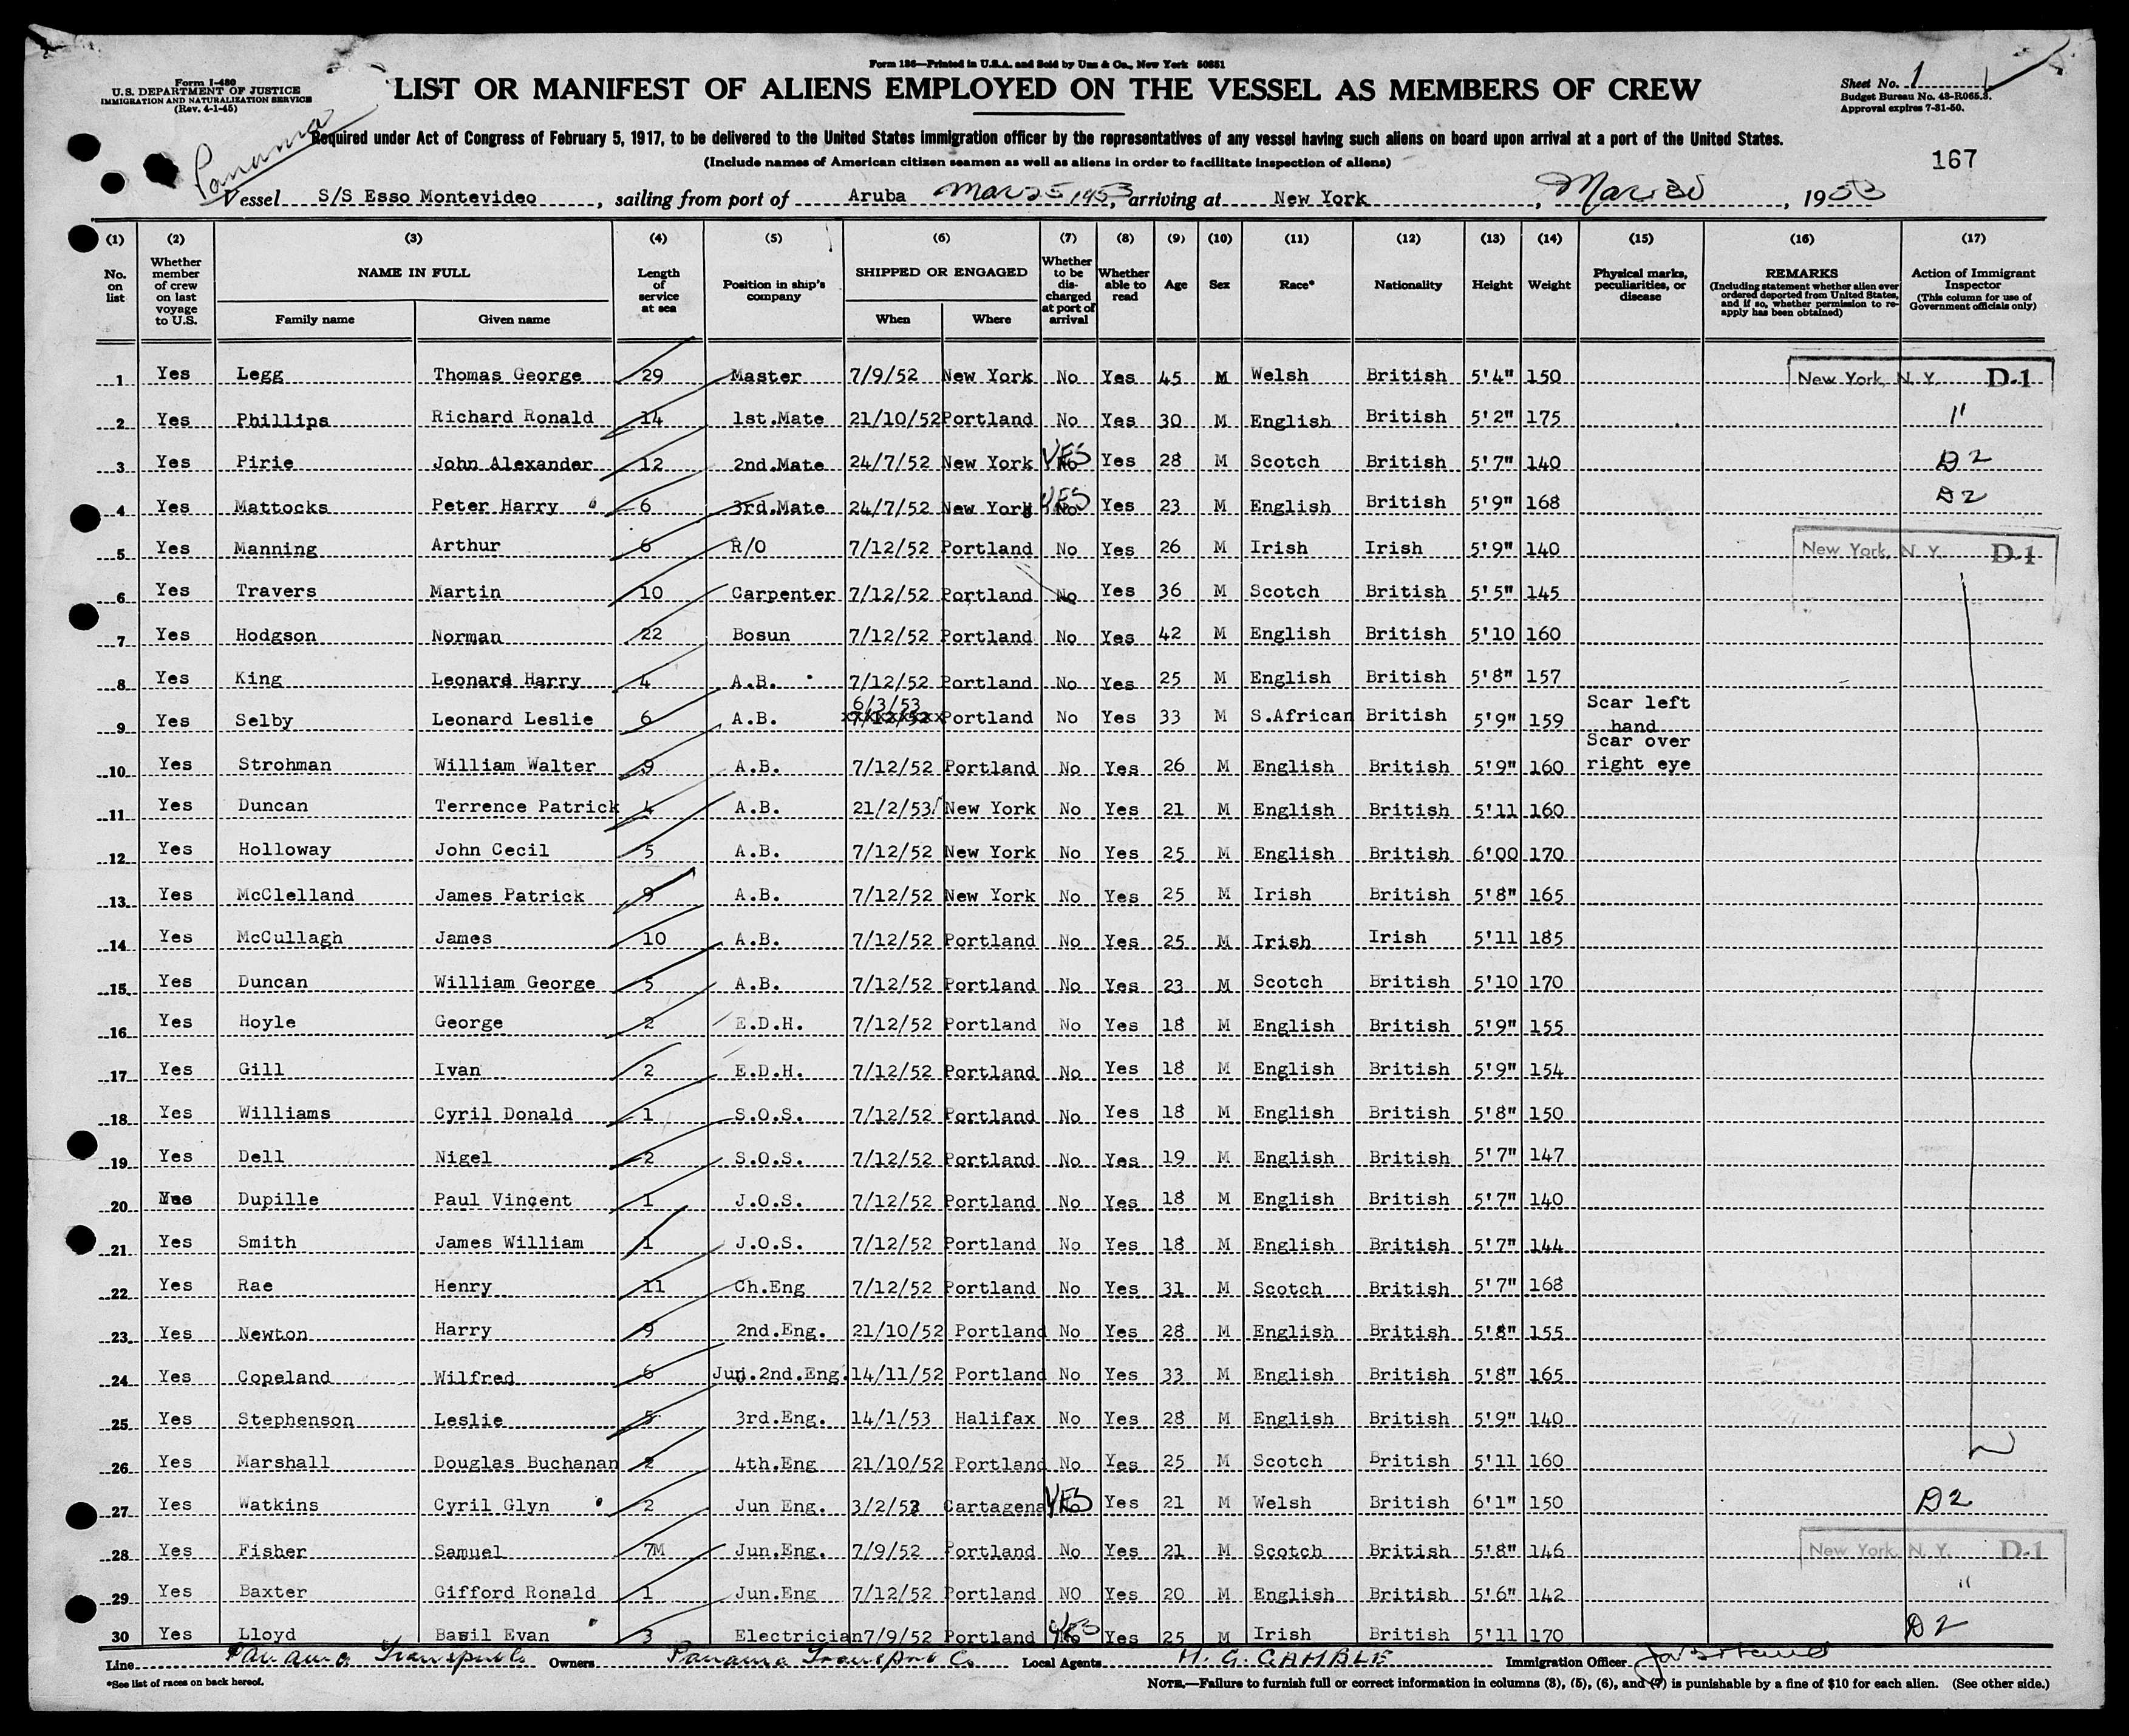 Form 136—Printed in U.S.A. and Sold by Unz & Co., New York 50851
Form I-480
U.S. DEPARTMENT OF JUSTICE
IMMIGRATION AND NATURALIZATION SERVICE
(Rev. 4-1-45)
LIST OR MANIFEST OF ALIENS EMPLOYED ON THE VESSEL AS MEMBERS OF CREW
Sheet No. 1
Budget Bureau No. 43-R065.3.
Approval expires 7-31-50.
Panama
Required under Act of Congress of February 5, 1917, to be delivered to the United States immigration officer by the representatives of any vessel having such aliens on board upon arrival at a port of the United States.
(Include names of American citizen seamen as well as aliens in order to facilitate inspection of aliens)
167
Vessel S/S Esso Montevideo, sailing from port of Aruba Mar 25 1953, arriving at New York, Mar 30, 1953
(1) (2) (3) (4) (5) (6) (7) (8) (9) (10) (11) (12) (13) (14) (15) (16) (17)
No. on list
Whether member of crew on last voyage to U.S.
NAME IN FULL
Family name Given name
Length of service at sea
Position in ship's company
SHIPPED OR ENGAGED
When Where
Whether to be discharged at port of arrival
Whether able to read
Age
Sex
Race*
Nationality
Height
Weight
Physical marks, peculiarities, or disease
REMARKS
(Including statement whether alien ever ordered deported from United States, and if so, whether permission to reapply has been obtained)
Action of Immigrant Inspector
(This column for use of Government officials only)
1 Yes Legg Thomas George 29 Master 7/9/52 New York No Yes 45 M Welsh British 5'4" 150 New York, N. Y. D-1
2 Yes Phillips Richard Ronald 14 1st.Mate 21/10/52 Portland No Yes 30 M English British 5'2" 175 "
3 Yes Pirie John Alexander 12 2nd.Mate 24/7/52 New York No YES Yes 28 M Scotch British 5'7" 140 D2
4 Yes Mattocks Peter Harry 6 3rd.Mate 24/7/52 New York No YES Yes 23 M English British 5'9" 168 D2
5 Yes Manning Arthur 6 R/O 7/12/52 Portland No Yes 26 M Irish Irish 5'9" 140 New York, N. Y. D-1
6 Yes Travers Martin 10 Carpenter 7/12/52 Portland No Yes 36 M Scotch British 5'5" 145
7 Yes Hodgson Norman 22 Bosun 7/12/52 Portland No Yes 42 M English British 5'10 160
8 Yes King Leonard Harry 4 A.B. 7/12/52 Portland No Yes 25 M English British 5'8" 157
9 Yes Selby Leonard Leslie 6 A.B. 6/3/53 7/12/52 Portland No Yes 33 M S.African British 5'9" 159 Scar left hand
10 Yes Strohman William Walter 9 A.B. 7/12/52 Portland No Yes 26 M English British 5'9" 160 Scar over right eye
11 Yes Duncan Terrence Patrick 4 A.B. 21/2/53 New York No Yes 21 M English British 5'11 160
12 Yes Holloway John Cecil 5 A.B. 7/12/52 New York No Yes 25 M English British 6'00 170
13 Yes McClelland James Patrick 9 A.B. 7/12/52 New York No Yes 25 M Irish British 5'8" 165
14 Yes McCullagh James 10 A.B. 7/12/52 Portland No Yes 25 M Irish Irish 5'11 185
15 Yes Duncan William George 5 A.B. 7/12/52 Portland No Yes 23 M Scotch British 5'10 170
16 Yes Hoyle George 2 E.D.H. 7/12/52 Portland No Yes 18 M English British 5'9" 155
17 Yes Gill Ivan 2 E.D.H. 7/12/52 Portland No Yes 18 M English British 5'9" 154
18 Yes Williams Cyril Donald 1 S.O.S. 7/12/52 Portland No Yes 18 M English British 5'8" 150
19 Yes Dell Nigel 2 S.O.S. 7/12/52 Portland No Yes 19 M English British 5'7" 147
20 Dupille Paul Vincent 1 J.O.S. 7/12/52 Portland No Yes 18 M English British 5'7" 140
21 Yes Smith James William 1 J.O.S. 7/12/52 Portland No Yes 18 M English British 5'7" 144
22 Yes Rae Henry 11 Ch.Eng 7/12/52 Portland No Yes 31 M Scotch British 5'7" 168
23 Yes Newton Harry 9 2nd.Eng. 21/10/52 Portland No Yes 28 M English British 5'8" 155
24 Yes Copeland Wilfred 6 Jun.2nd.Eng. 14/11/52 Portland No Yes 33 M English British 5'8" 165
25 Yes Stephenson Leslie 5 3rd.Eng. 14/1/53 Halifax No Yes 28 M English British 5'9" 140
26 Yes Marshall Douglas Buchanan 2 4th.Eng 21/10/52 Portland No Yes 25 M Scotch British 5'11 160
27 Yes Watkins Cyril Glyn 2 Jun Eng. 3/2/53 Cartagena No YES Yes 21 M Welsh British 6'1" 150 D2
28 Yes Fisher Samuel 7M Jun.Eng. 7/9/52 Portland No Yes 21 M Scotch British 5'8" 146 New York, N. Y. D-1
29 Yes Baxter Gifford Ronald 1 Jun.Eng 7/12/52 Portland NO Yes 20 M English British 5'6" 142 "
30 Yes Lloyd Basil Evan 3 Electrician 7/9/52 Portland No YES Yes 25 M Irish British 5'11 170 D2
Line Panama Transport Co Owners Panama Transport Co Local Agents H. G. GAMBLE Immigration Officer
*See list of races on back hereof.
NOTE.—Failure to furnish full or correct information in columns (3), (5), (6), and (7) is punishable by a fine of $10 for each alien. (See other side.)